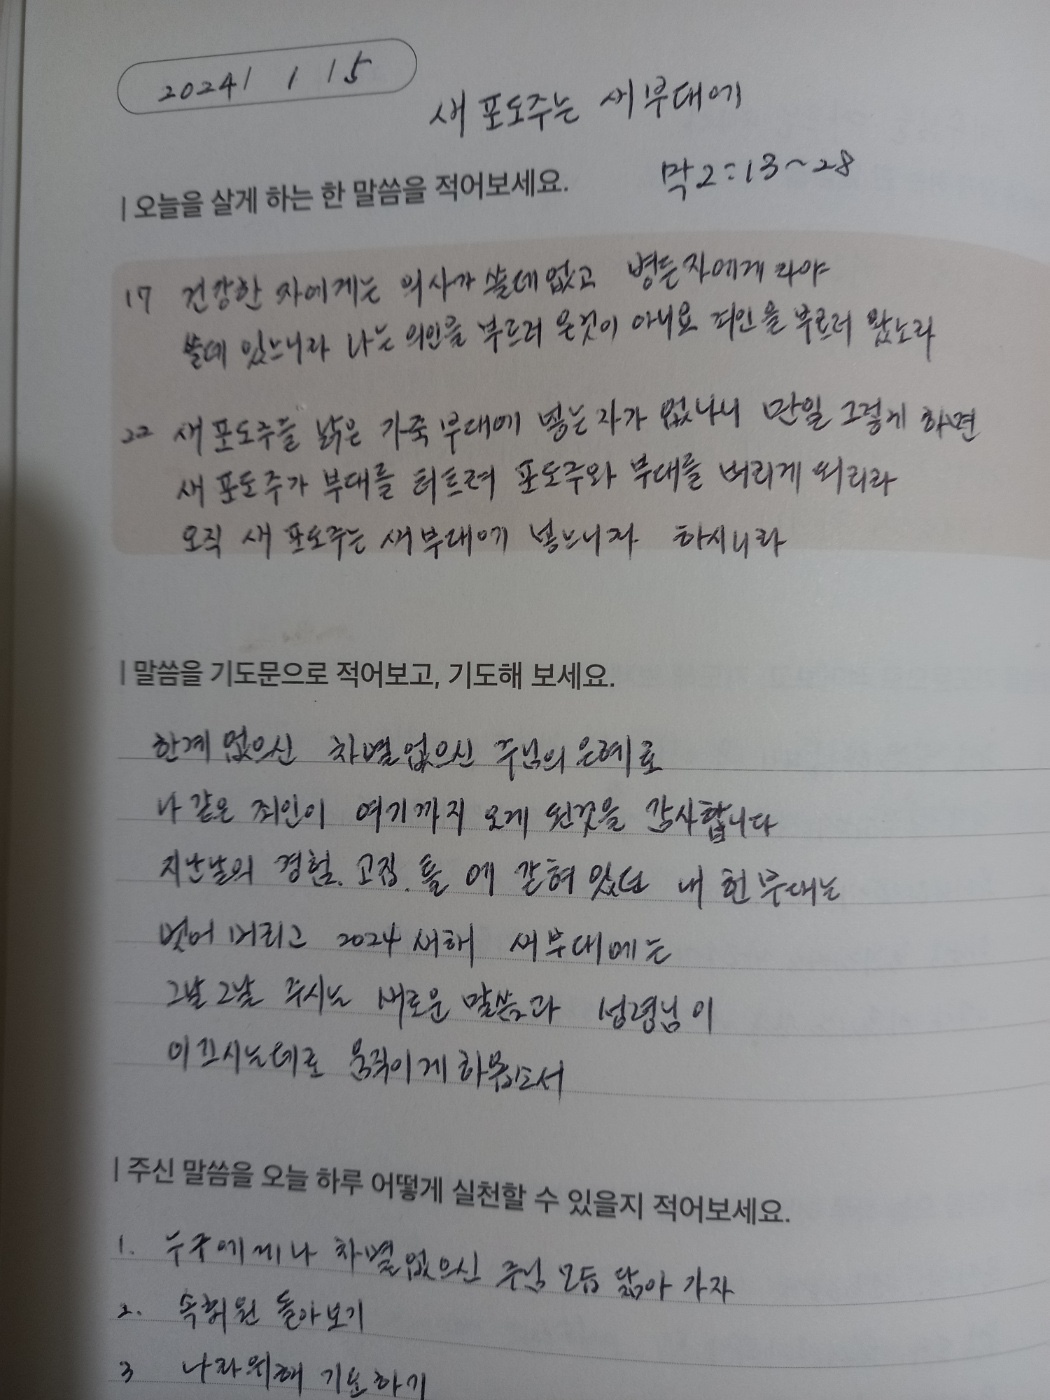 2024 1 1 15
새 포도주는 새부대에
막2:13~28
오늘을 살게 하는 한 말씀을 적어보세요.
17 건강한 자에게는 의사가 쓸데없고 병든자에게 라야
쓸데 있느니라 나는 의인을 부르러 온것이 아니요 죄인을 부르러 왔노라
22 새 포도주를 낡은 가죽 부대에 넣는자가 없나니 만일 그렇게 하면
새 포도주가 부대를 터트려 포도주와 부대를 버리게 되리라
오직 새 포도주는 새부대에 넣느니라 하시니라
말씀을 기도문으로 적어보고, 기도해 보세요.
한계 없으신 차별없으신 주님의 은혜로
나 같은 죄인이 여기까지 오게 된것을 감사합니다
지난날의 경험. 고집. 틀 에 갇혀 있던 내 헌 부대는
벗어 버리고 2024 새해 새부대에는
그날그날 주시는 새로운 말씀과 성령님이
이끄시는데로 움직이게 하옵소서
주신 말씀을 오늘 하루 어떻게 실천할 수 있을지 적어보세요.
1. 누구에게나 차별없으신 주님 모습 닮아 가자
2. 속회원 돌아보기
3 나라위해 기도하기